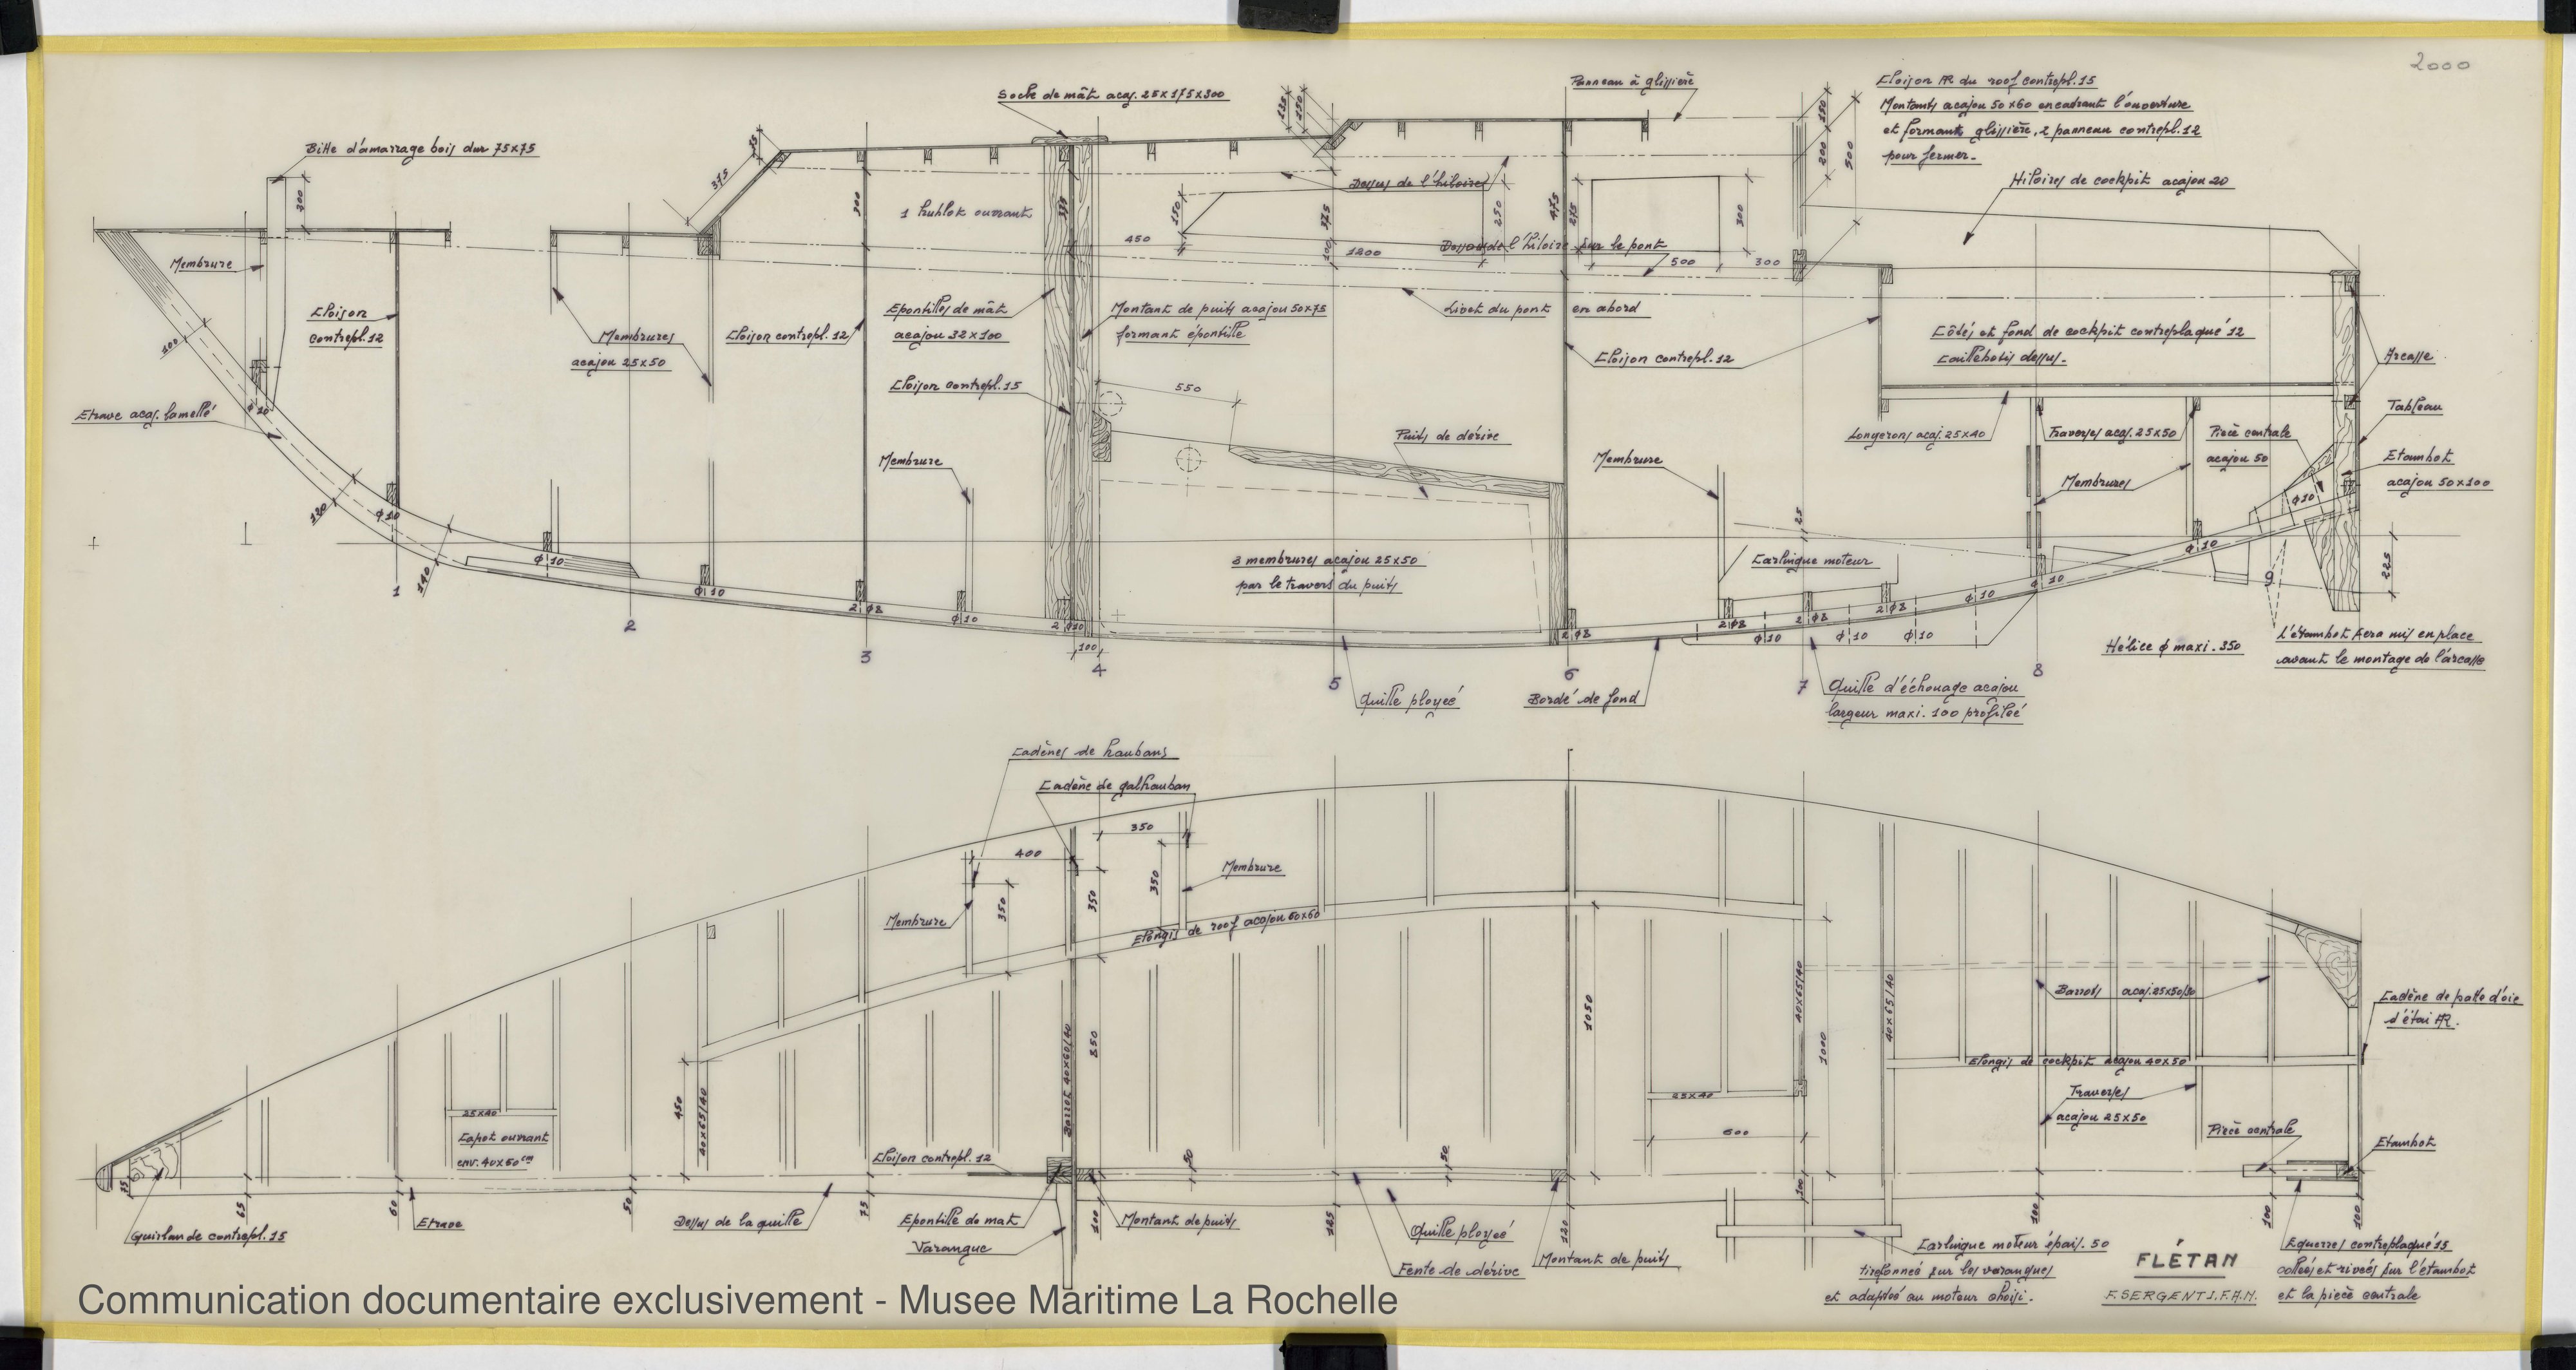 2000
Socle de mât acaj. 25x175x300
Panneau à glissière
Cloison AR du roof contrepl. 15
Montants acajou 50x60 encadrant l'ouverture
et formant glissière, 2 panneau contrepl. 12
pour fermer.
Bitte d'amarrage bois dur 75x75
Hiloires de cockpit acajou 20
Dessus de l'hiloire
1 hublot ouvrant
Dessous de l'hiloire sur le pont
375
300
300
450
150
1200
375
250
475
275
300
500
300
150
200
500
125
150
Membrure
Cloison
contrepl. 12
Membrures
acajou 25x50
Cloison contrepl. 12
Epontilles de mât
acajou 32x100
Montant de puits acajou 50x75
formant épontille
Livet du pont en abord
Cloison contrepl. 12
Côtés et fond de cockpit contreplaqué 12
caillebotis dessus.
Arcasse
Cloison contrepl. 15
550
Etrave acaj. lamellé
100
120
140
Puits de dérive
Longerons acaj. 25x40
Traverses acaj. 25x50
Pièce centrale
acajou 50
Tableau
Etambot
acajou 50x100
Membrure
Membrure
Membrures
3 membrures acajou 25x50
par le travers du puits
Carlingue moteur
25
225
φ 10
φ 10
φ 10
φ 10
2 φ 8
φ 10
2 φ 10
2 φ 8
2 φ 8
φ 10
2 φ 8
φ 10
2 φ 8
φ 10
φ 10
φ 10
φ 10
φ 10
100
1
2
3
4
5
6
7
8
9
Quille ployée
Bordé de fond
Quille d'échouage acajou
largeur maxi. 100 profilée
Hélice φ maxi. 350
L'étambot sera mis en place
avant le montage de l'arcasse
Cadènes de haubans
Cadène de galhauban
350
400
350
350
350
Membrure
Membrure
Elongis de roof acajou 60x60
Barrots acaj. 25x50/30
Cadène de patte d'oie
d'étai AR.
Elongis de cockpit acajou 40x50
Traverses
acajou 25x50
Pièce centrale
Etambot
450
40x65/40
Barrot 40x60/40
850
1050
40x65/40
1000
40x65/40
25x40
Capot ouvrant
env. 40x50 cm
25x40
600
Cloison contrepl. 12
50
50
75
65
60
50
75
100
125
120
100
100
100
100
Guirlande contrepl. 15
Etrave
Dessus de la quille
Epontille de mat
Varangue
Montant de puits
Quille ployée
Fente de dérive
Montant de puits
Carlingue moteur épais. 50
tirefonnée sur les varangues
et adaptée au moteur choisi.
FLÉTAN
F. SERGENT J.F.A.M.
Equerres contreplaqué 15
collées et rivées sur l'étambot
et la pièce centrale
Communication documentaire exclusivement - Musee Maritime La Rochelle